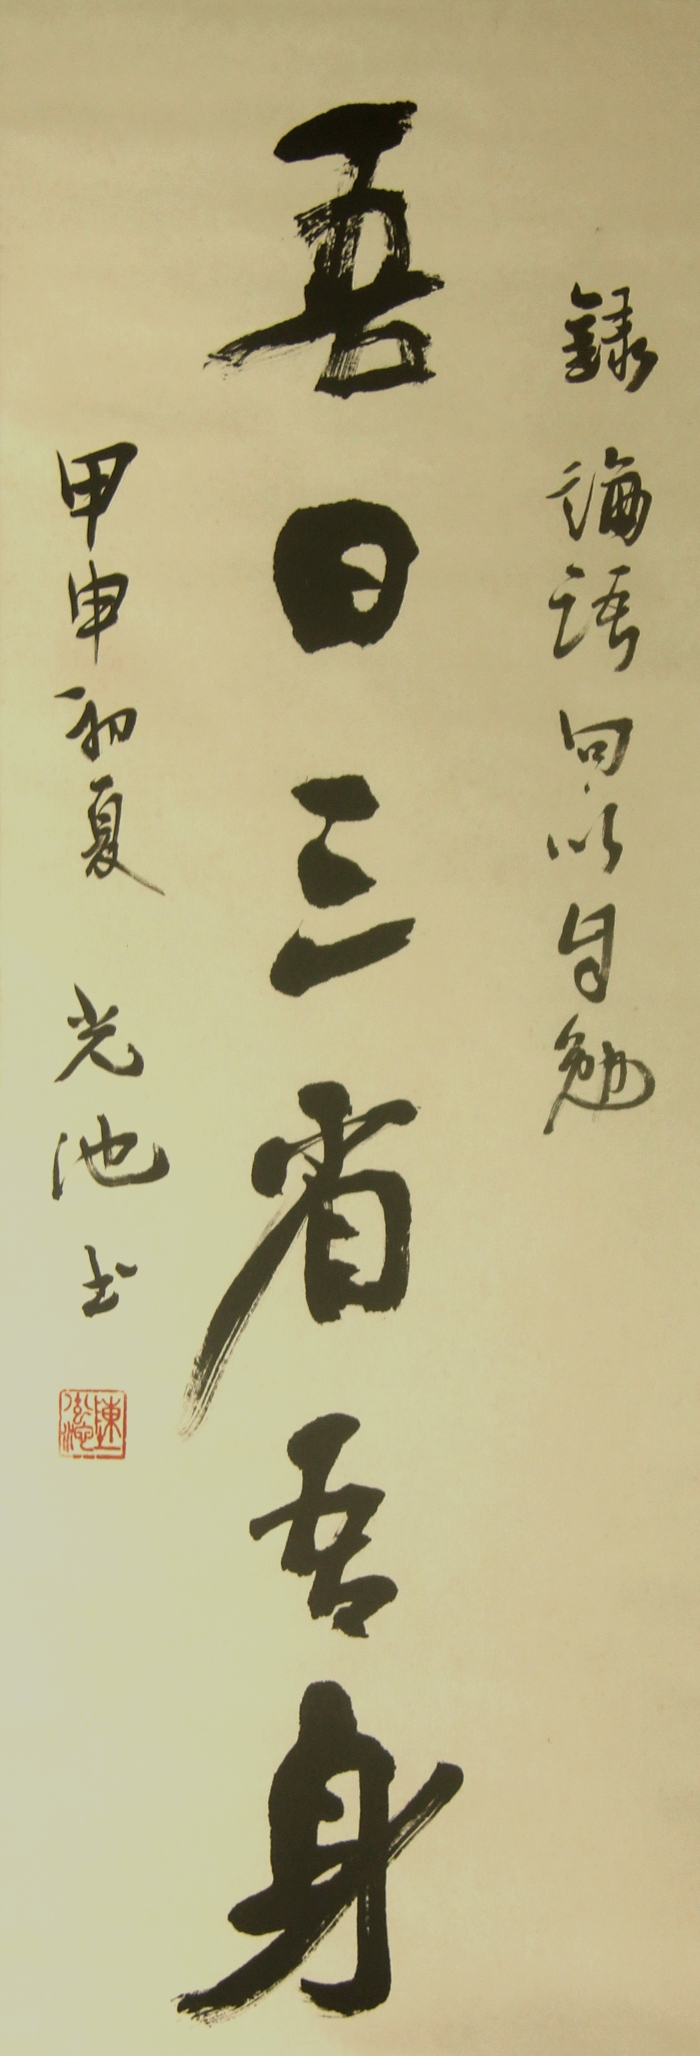 錄論語句以自勉
吾日三省吾身
甲申初夏 光池书